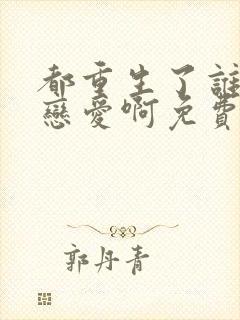 都重生了誰
戀愛啊免費
郭丹青